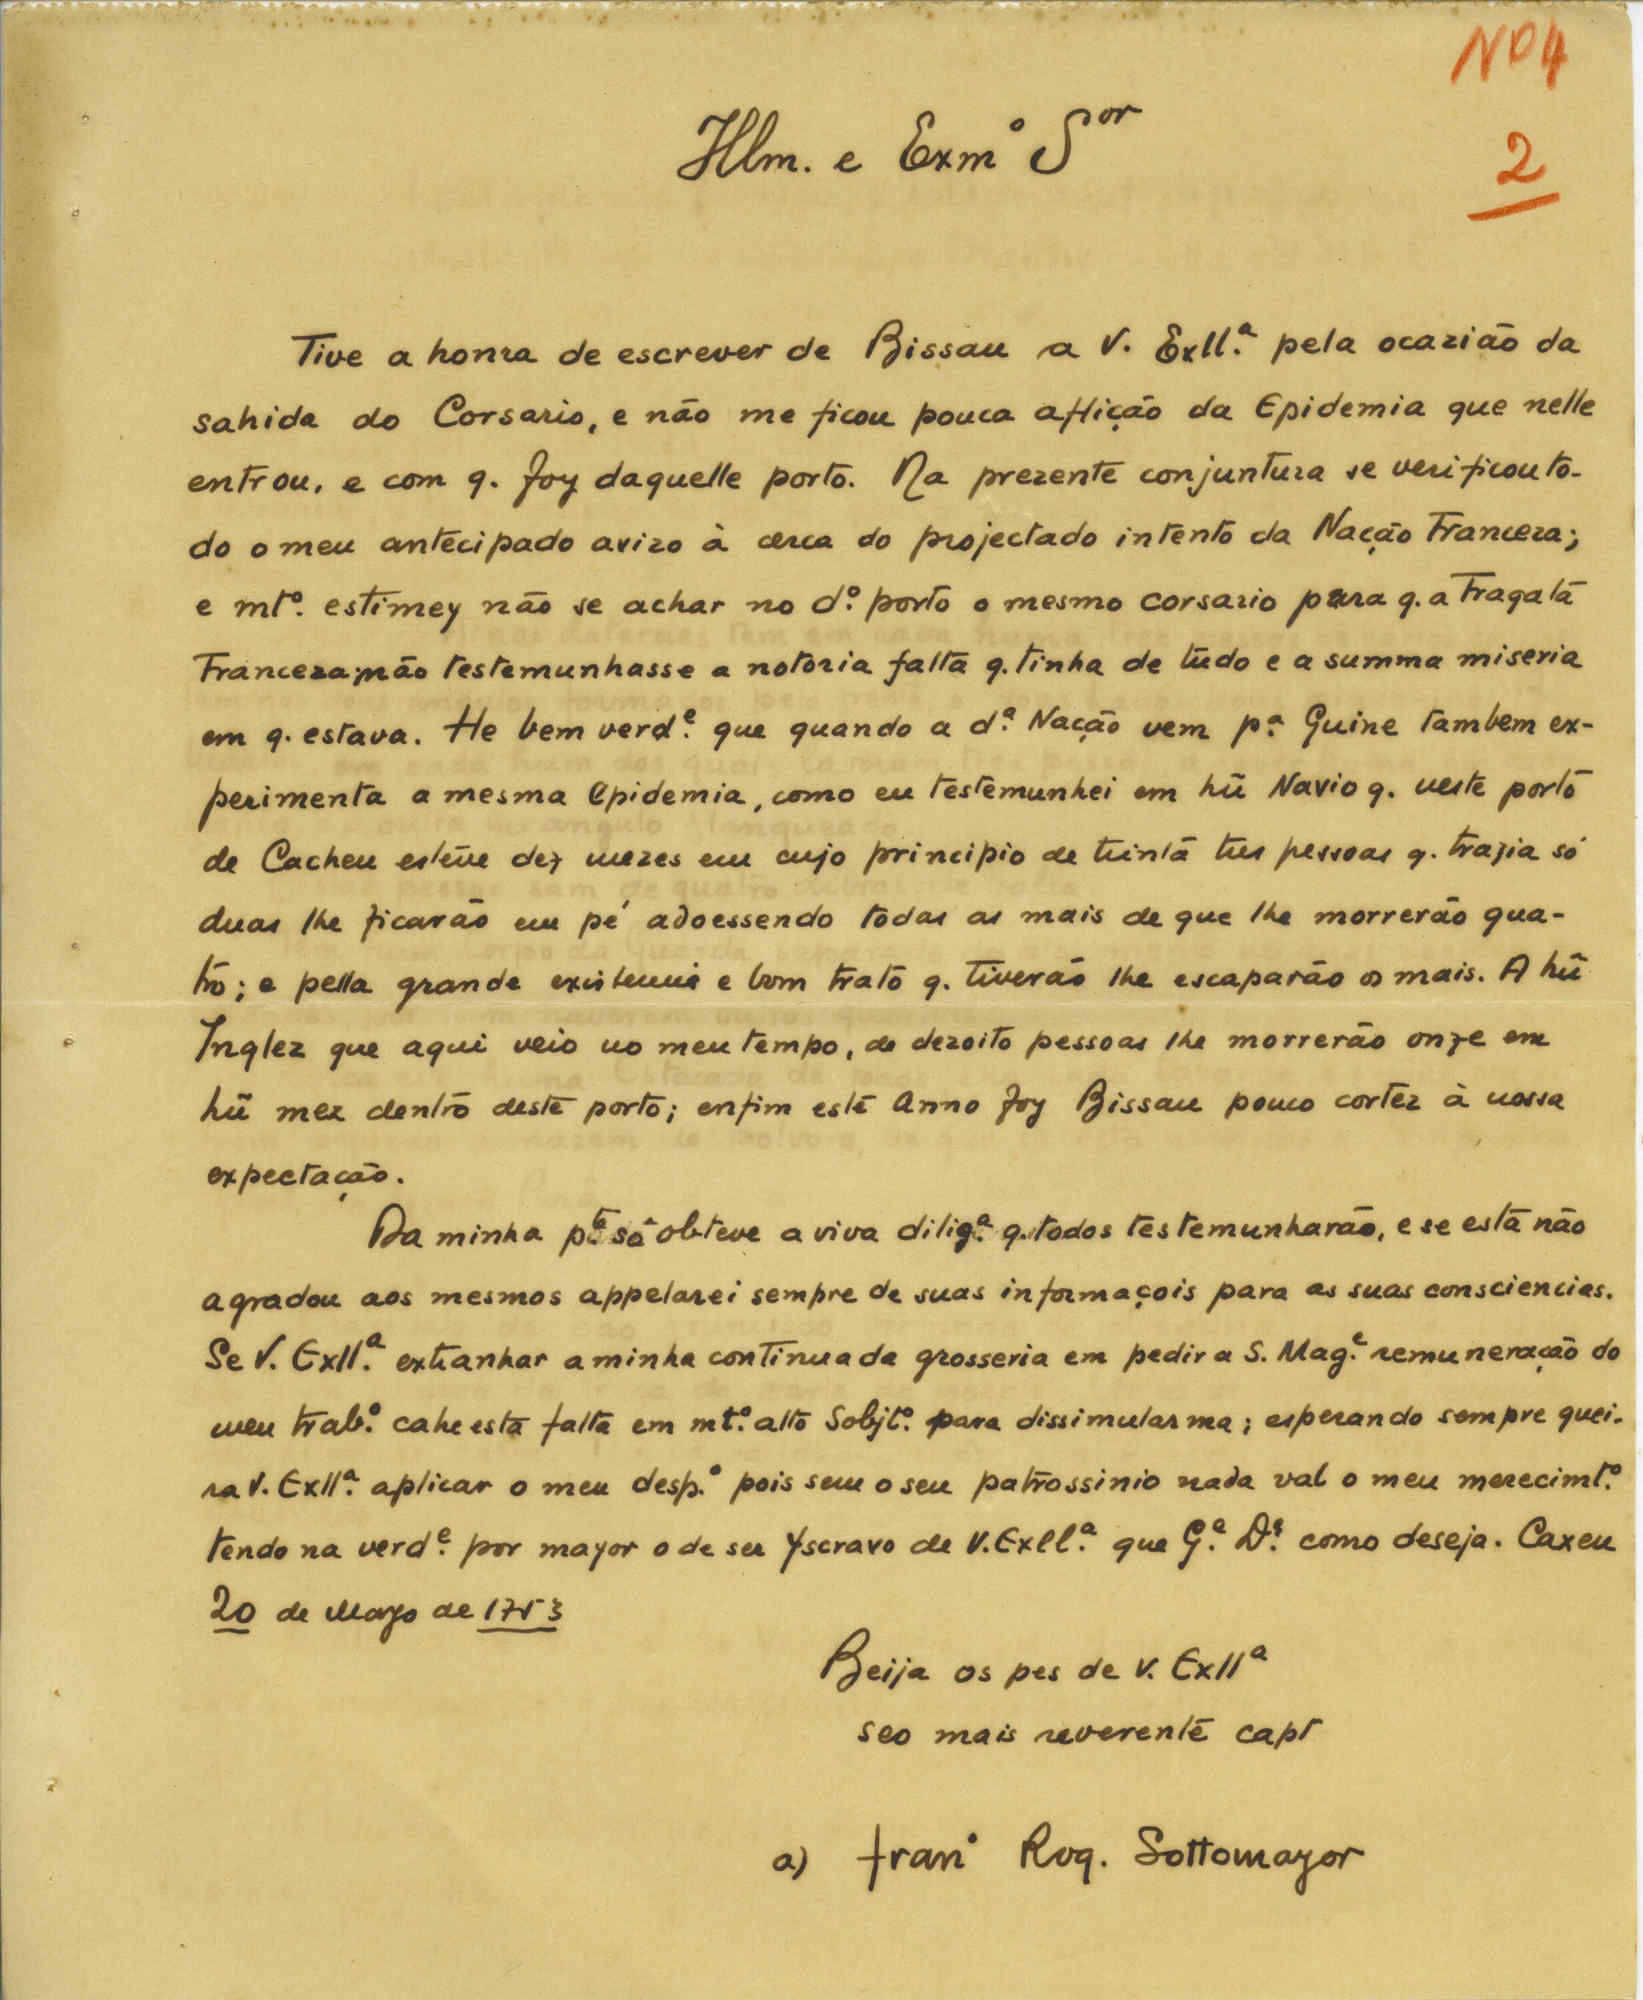 Nº 4
2
Illm. e Exmº Sor
Tive a honra de escrever de Bissau a V. Exll.ª pela ocazião da
sahida do Corsario, e não me ficou pouca aflição da Epidemia que nelle
entrou, e com q. foy daquelle porto. Na prezente conjuntura se verificou to-
do o meu antecipado avizo à cerca do projectado intento da Nação Franceza;
e mtº. estimey não se achar no dº. porto o mesmo corsario para q. a Fragata
Franceza não testemunhasse a notoria falta q. tinha de tudo e a summa miseria
em q. estava. He bem verdᵉ. que quando a dª. Nação vem pª. Guine tambem ex-
perimenta a mesma epidemia, como eu testemunhei em hũ Navio q. neste porto
de Cacheu esteve dez mezes em cujo principio de trinta tres pessoas q. trazia só
duas lhe ficarão em pé adoessendo todas as mais de que lhe morrerão qua-
tro; e pella grande e bom trato q. tiverão lhe escaparão os mais. A hũ
Inglez que aqui veio no meu tempo, de dezoito pessoas lhe morrerão onze em
hũ mez dentro deste porto; enfim este Anno foy Bissau pouco cortez à nossa
expectação.
Da minha pte só obteve a viva diligª. q. todos testemunharão, e se esta não
agradou aos mesmos appelarei sempre de suas informaçois para as suas consciencias.
Se V. Exll.ª extranhar a minha continuada grosseria em pedir a S. Magᵉ. remuneração do
meu trabº. cahe esta falta em mtº. alto Sobjtº. para dissimularma; esperando sempre quei-
ra V. Exllª. aplicar o meu despº. pois sem o seu patrossinio nada val o meu merecimtº.
tendo na verdᵉ. por mayor o de ser Yscravo de V. Exll.ª que Gᵉ. Dˢ. como deseja. Caxeu
20 de Mayo de 1753
Beija os pes de V. Exllª
seo mais reverente capt
a) franº Roq. Sottomayor